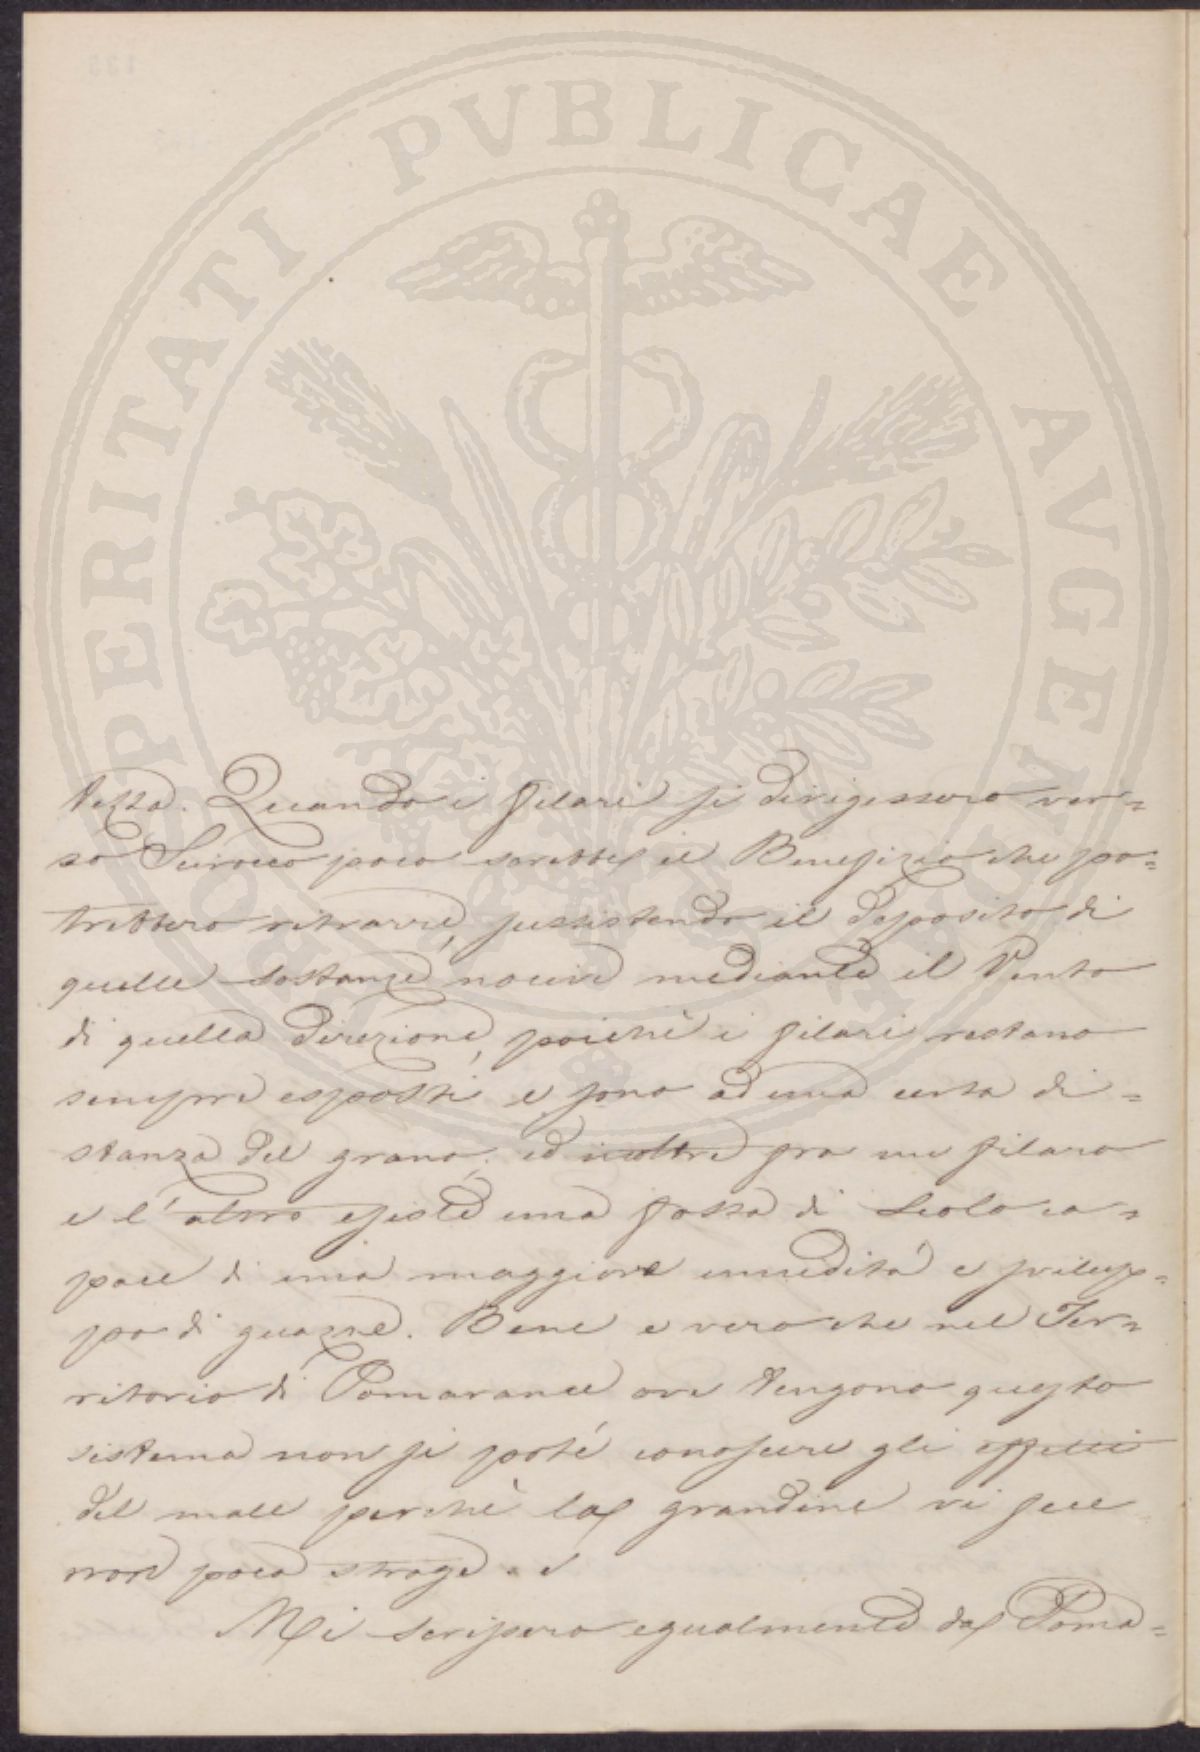 PROSPERITATI PVBLICAE AVGENDAE
tezza. Quando i filari si dirigessero ver=
so Scirocco poco sarebbe il Benefizio che po=
trebbero ritrarre, sussistendo il deposito di
quelle sostanze nocive mediante il Vento
di quella direzione, poichè i filari restano
sempre esposti, e sono ad una certa di=
stanza del grano; ed inoltre fra un filaro
e l'altro esiste una fossa di scolo ca=
pace di una maggiore umedità e svilup=
po di guazze. Bene e vero che nel Ter=
ritorio di Pomarance ove tengono questo
sistema non si poté conoscere gli effetti
del male perchè la grandine vi fece
non poca strage.
Mi scrissero egualmente da Poma=